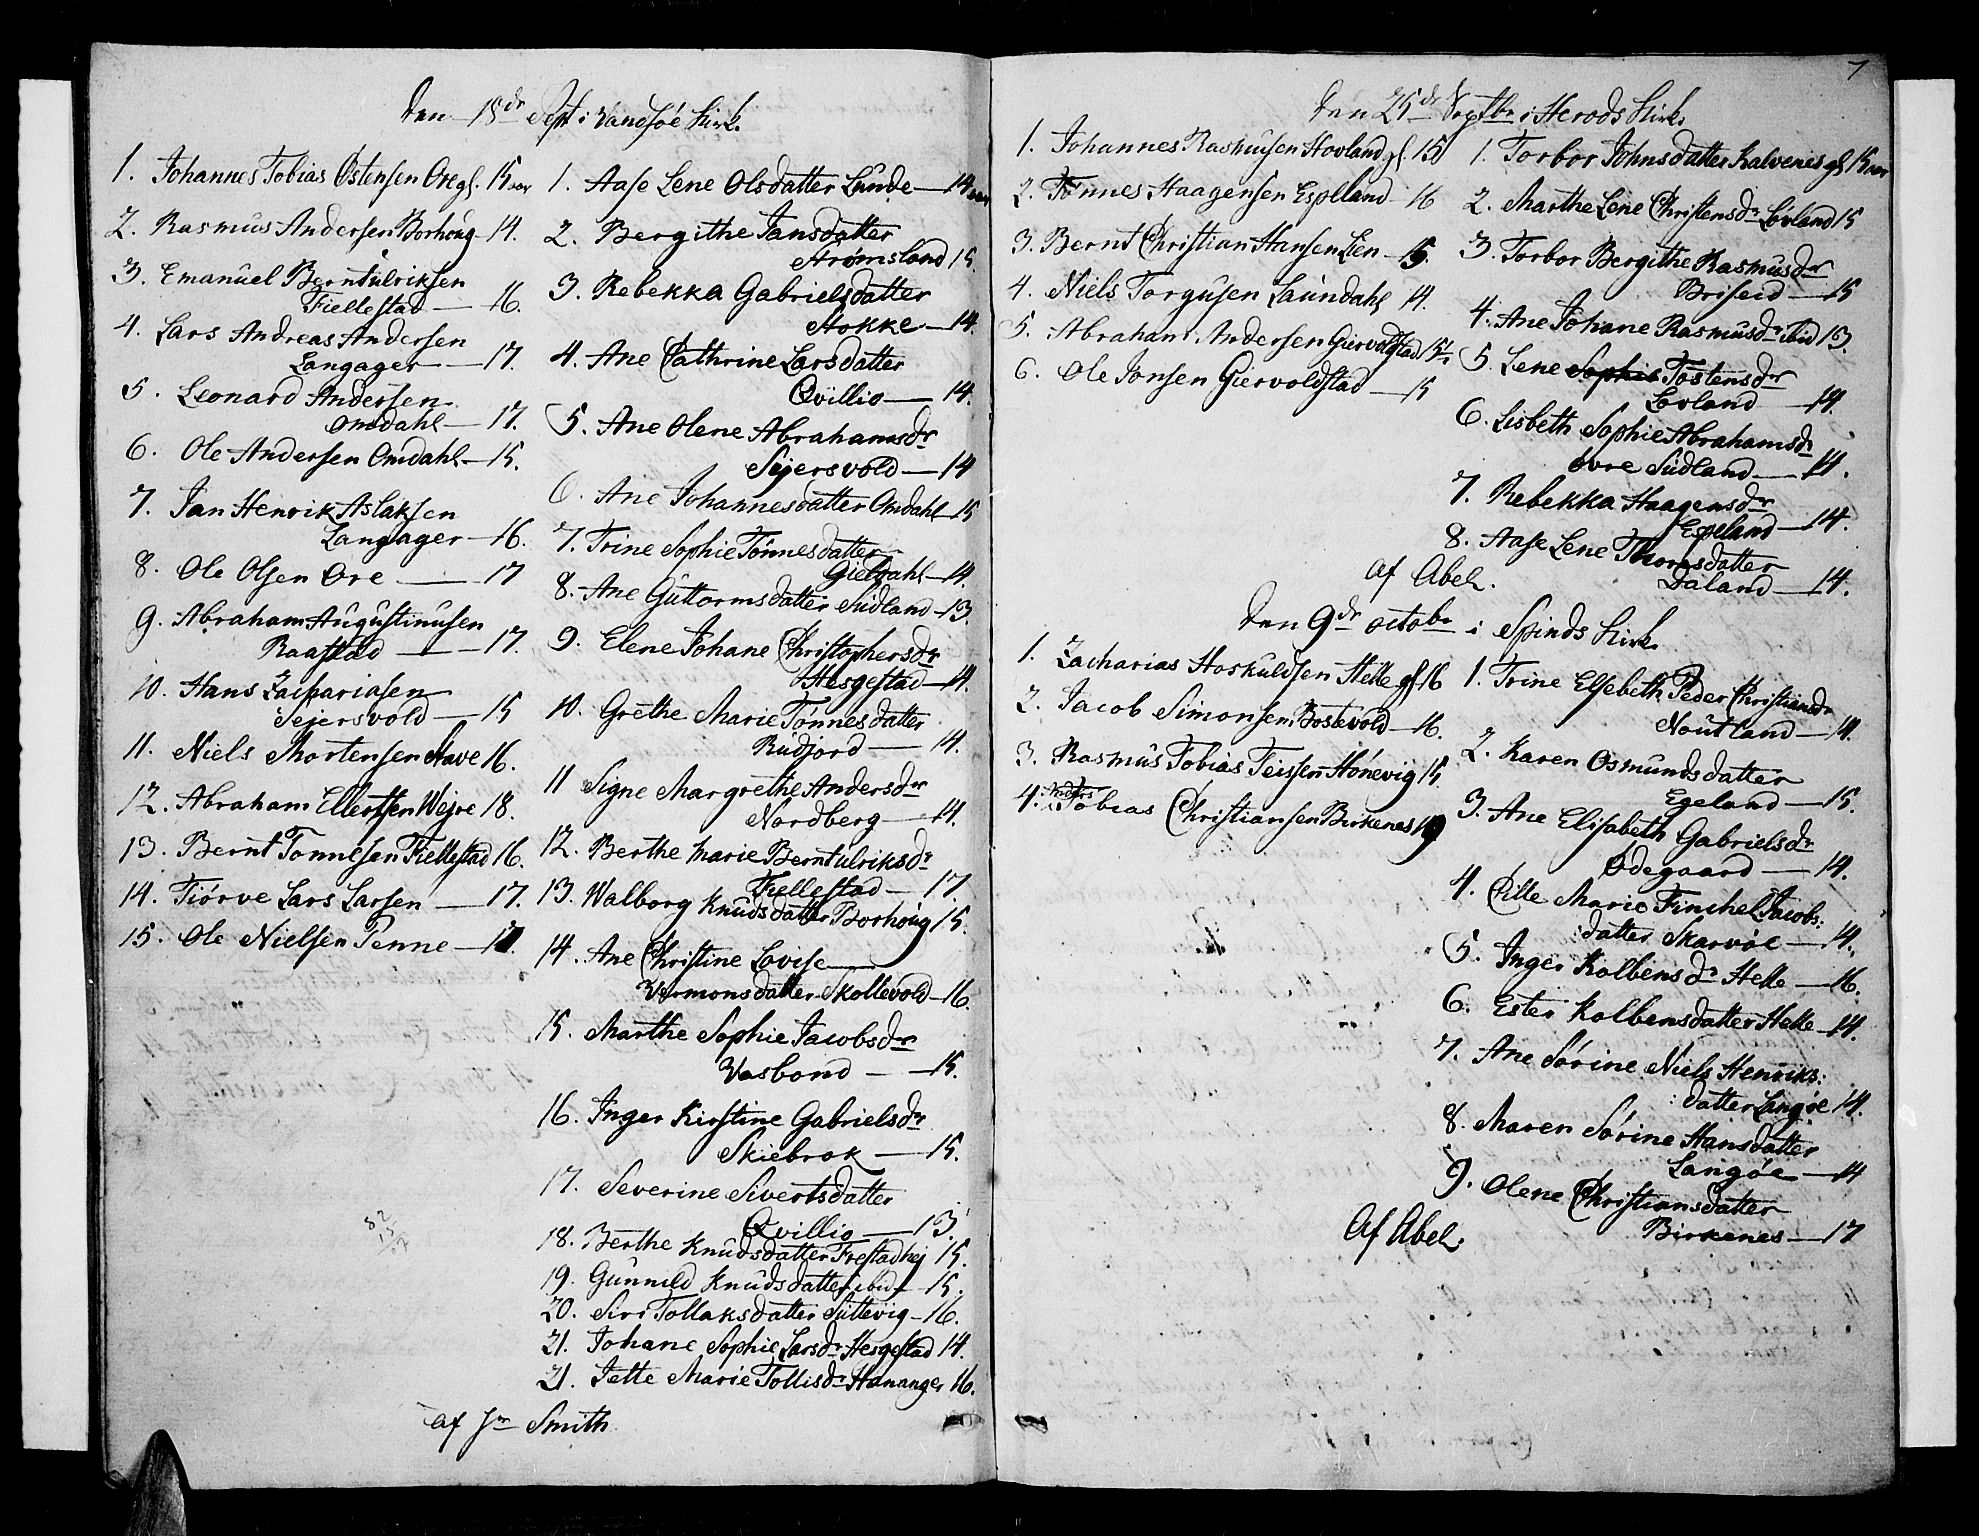 Den 18de Sept i Vandsøe Kirk.
1. Johannes Tobias Ostensen Ore gl. 15 aar
2. Rasmus Andersen Borhoug - 14.
3. Emanuel Berntulriksen
Fiellestad — 16.
4. Lars Andreas Andersen
Langager — 17.
5. Leonard Andersen
Omdahl — 17.
6. Ole Andersen Omdahl — 15.
7. Jan Henrik Aslaksen
Langager — 16.
8. Ole Olsen Ore — 17
9. Abraham Augustinusen
Raastad — 17.
10. Hans Zachariasen
Sejersvold — 15
11. Niels Mortensen Stave 16.
12. Abraham Ellertsen Wejre 18.
13. Bernt Tonnesen Fiellestad 16.
14. Tiörve Lars Larsen — 17.
15. Ole Nielsen Penne —
1. Aase Lene Olsdatter Lunde — 14 aar
2. Bergithe Jansdatter
Strømsland 15.
3. Rebekka Gabrielsdatter
Stokke — 14.
4. Ane Cathrine Larsdatter
Qvillio — 14.
5. Ane Olene Abrahamsdr
Sejersvold — 14
6. Ane Johannesdatter Omdahl — 15
7. Trine Sophie Tönnesdatter
Gieldahl — 14.
8. Ane Guttormsdatter Sudland — 13.
9. Elene Johane Christophersdr
Hesgestad — 14.
10. Grethe Marie Tönnesdatter
Rudjord — 14.
11 Signe Margrethe Andersdr
Nordberg — 14.
12. Berthe Marie Berntulriksdr
Fiellestad — 17.
13. Walborg Knudsdatter Borhoug 15.
14. Ane Christine Lovise
Vermonsdatter Skollevold — 16.
15. Marthe Sophie Jacobsdr
Vasbond — 15.
16. Inger Kirstine Gabrielsdr
Skiebrok — 15.
17. Severine Sivertsdatter
Qvillio — 13.
18. Berthe Knudsdatter Frestadhej 15.
19. Gunnild Knudsdatter ibid — 15.
20. Siri Tollaksdatter Suttevig — 16.
21. Johane Sophie Larsdr Hesgestad 14.
21. Jette Marie Tollisdr Hananger 16.
af Smith
7
Den 25de Septbr i Herods Kirk.
1. Johannes Rasmusen Hovland gl. 15
2. Tönnes Haagensen Espeland 16
3. Bernt Christian Hansen Lien — 15.
4. Niels Torgusen Laundahl 14.
5. Abraham Andersen Giervoldstad
6. Ole Jonsen Giervoldstad — 15
1. Torbor Johnsdatter Kalvenis gl 15 aar
2. Marthe Lene Christensdr Lovland 15
3. Torbor Bergithe Rasmusdr
Briseid — 15
4. Ane Johane Rasmusdr ibid 13.
5. Lene Sophie Tostensdr
Lovland — 14.
6. Lisbeth Sophie Abrahamsdr
övre Sudland — 14.
7. Rebekka Haagensdr
Espeland — 14.
8. Aase Lene Thomsdatter
Daland — 14.
af Abel.
Den 9de octobr i Spinds Kirk.
1. Zacharias Hoskuldsen Helle gl 16
2. Jacob Simonsen Bostevold — 16.
3. Rasmus Tobias Teissen Hönevig 15.
4. Tobias Christiansen Birkenes 19
1. Trine Elsebeth Peder Christiansdr
Noutland — 14.
2. Karen Osmundsdatter
Egeland — 15.
3. Ane Elisabeth Gabrielsdr
Ödegaard — 14.
4. Cille Marie Finchel Jacobs:
:datter Skarvöe — 14.
5. Inger Kolbensdr Helle — 16.
6. Ester Kolbensdatter Helle — 14.
7. Ane Sörine Niels Henriks:
:datter Langöe 14.
8. Maren Sörine Hansdatter
Langöe — 14
9. Olene Christiansdatter
Birkenes — 17
Af Abel.